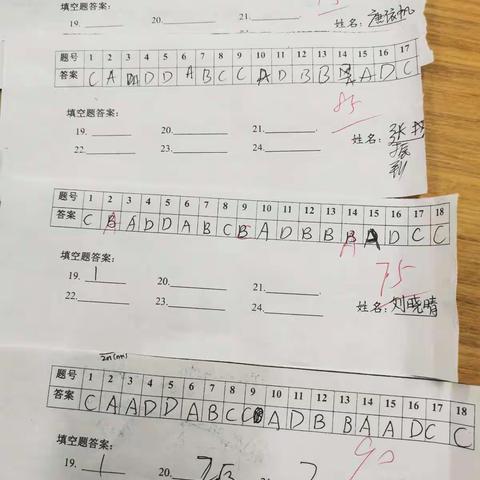 填空题答案:
19. 20. 21.
姓名:
题号 1 2 3 4 5 6 7 8 9 10 11 12 13 14 15 16 17
答案 C A D D A B C C A D B B A D C
85
填空题答案:
19. 20. 21.
22. 23. 24.
姓名: 张
题号 1 2 3 4 5 6 7 8 9 10 11 12 13 14 15 16 17 18
答案 C B A D D A B C B A D B B B A D C C
75
填空题答案:
19. 1 20. 21.
22. 23. 24.
姓名: 刘晓晴
2n(nm)
题号 1 2 3 4 5 6 7 8 9 10 11 12 13 14 15 16 17 18
答案 C A A D D A B C C A D B B A A D C C
90
填空题答案:
19. 1 20. 21.